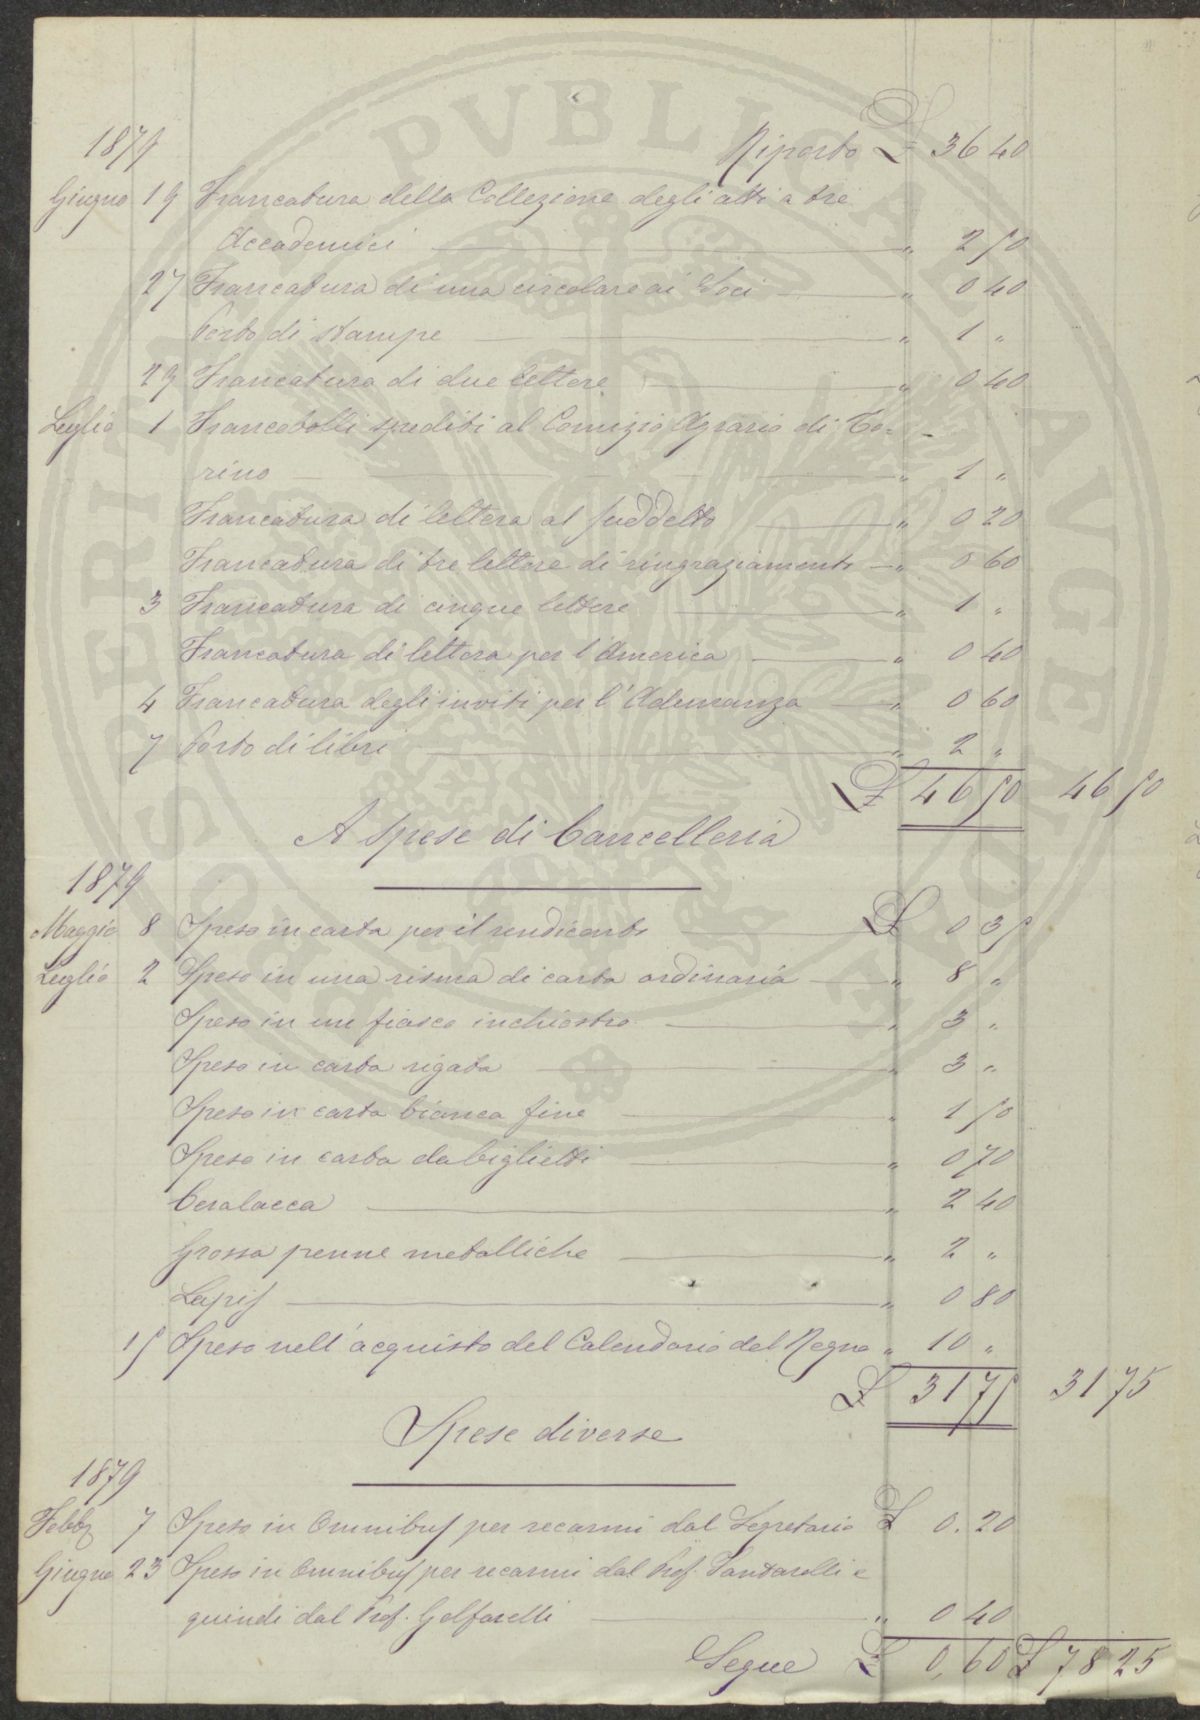 1879 Riporto £ 36 40
Giugno 19 Francatura della Collezione degli atti a tre
Accademici " 2 50
27 Francatura di una circolare ai Soci " 0 40
Porto di stampe " 1 "
29 Francatura di due lettere " 0 40
Luglio 1 Francobolli spediti al Comizio Agrario di To=
rino " 1 "
Francatura di lettera al suddetto " 0 20
Francatura di tre lettere di ringraziamento " 0 60
3 Francatura di cinque lettere " 1 "
Francatura di lettera per l'America " 0 40
4 Francatura degli inviti per l'Adunanza " 0 60
7 Porto di libri " 2 "
£ 46 50 46 50
A Spese di Cancelleria
1879
Maggio 8 Speso in carta per il rendiconto £ 0 35
Luglio 2 Speso in una risma di carta ordinaria " 8 "
Speso in un fiasco inchiostro " 3 "
Speso in carta rigata " 3 "
Speso in carta bianca fine " 1 50
Speso in carta da biglietti " 0 70
Ceralacca " 2 40
Grossa penne metalliche " 2 "
Lapis " 0 80
15 Speso nell'acquisto del Calendario del Regno " 10 "
£ 31 75 31 75
Spese diverse
1879
Febb. 7 Speso in Omnibus per recarmi dal Segretario £ 0.20
Giugno 23 Speso in Omnibus per recarmi dal Prof. Santarelli e
quindi dal Prof. Golfarelli " 0 40
Segue £ 0,60 £ 78 25
PVBLICAE AVGENDAE PROSPERITATI